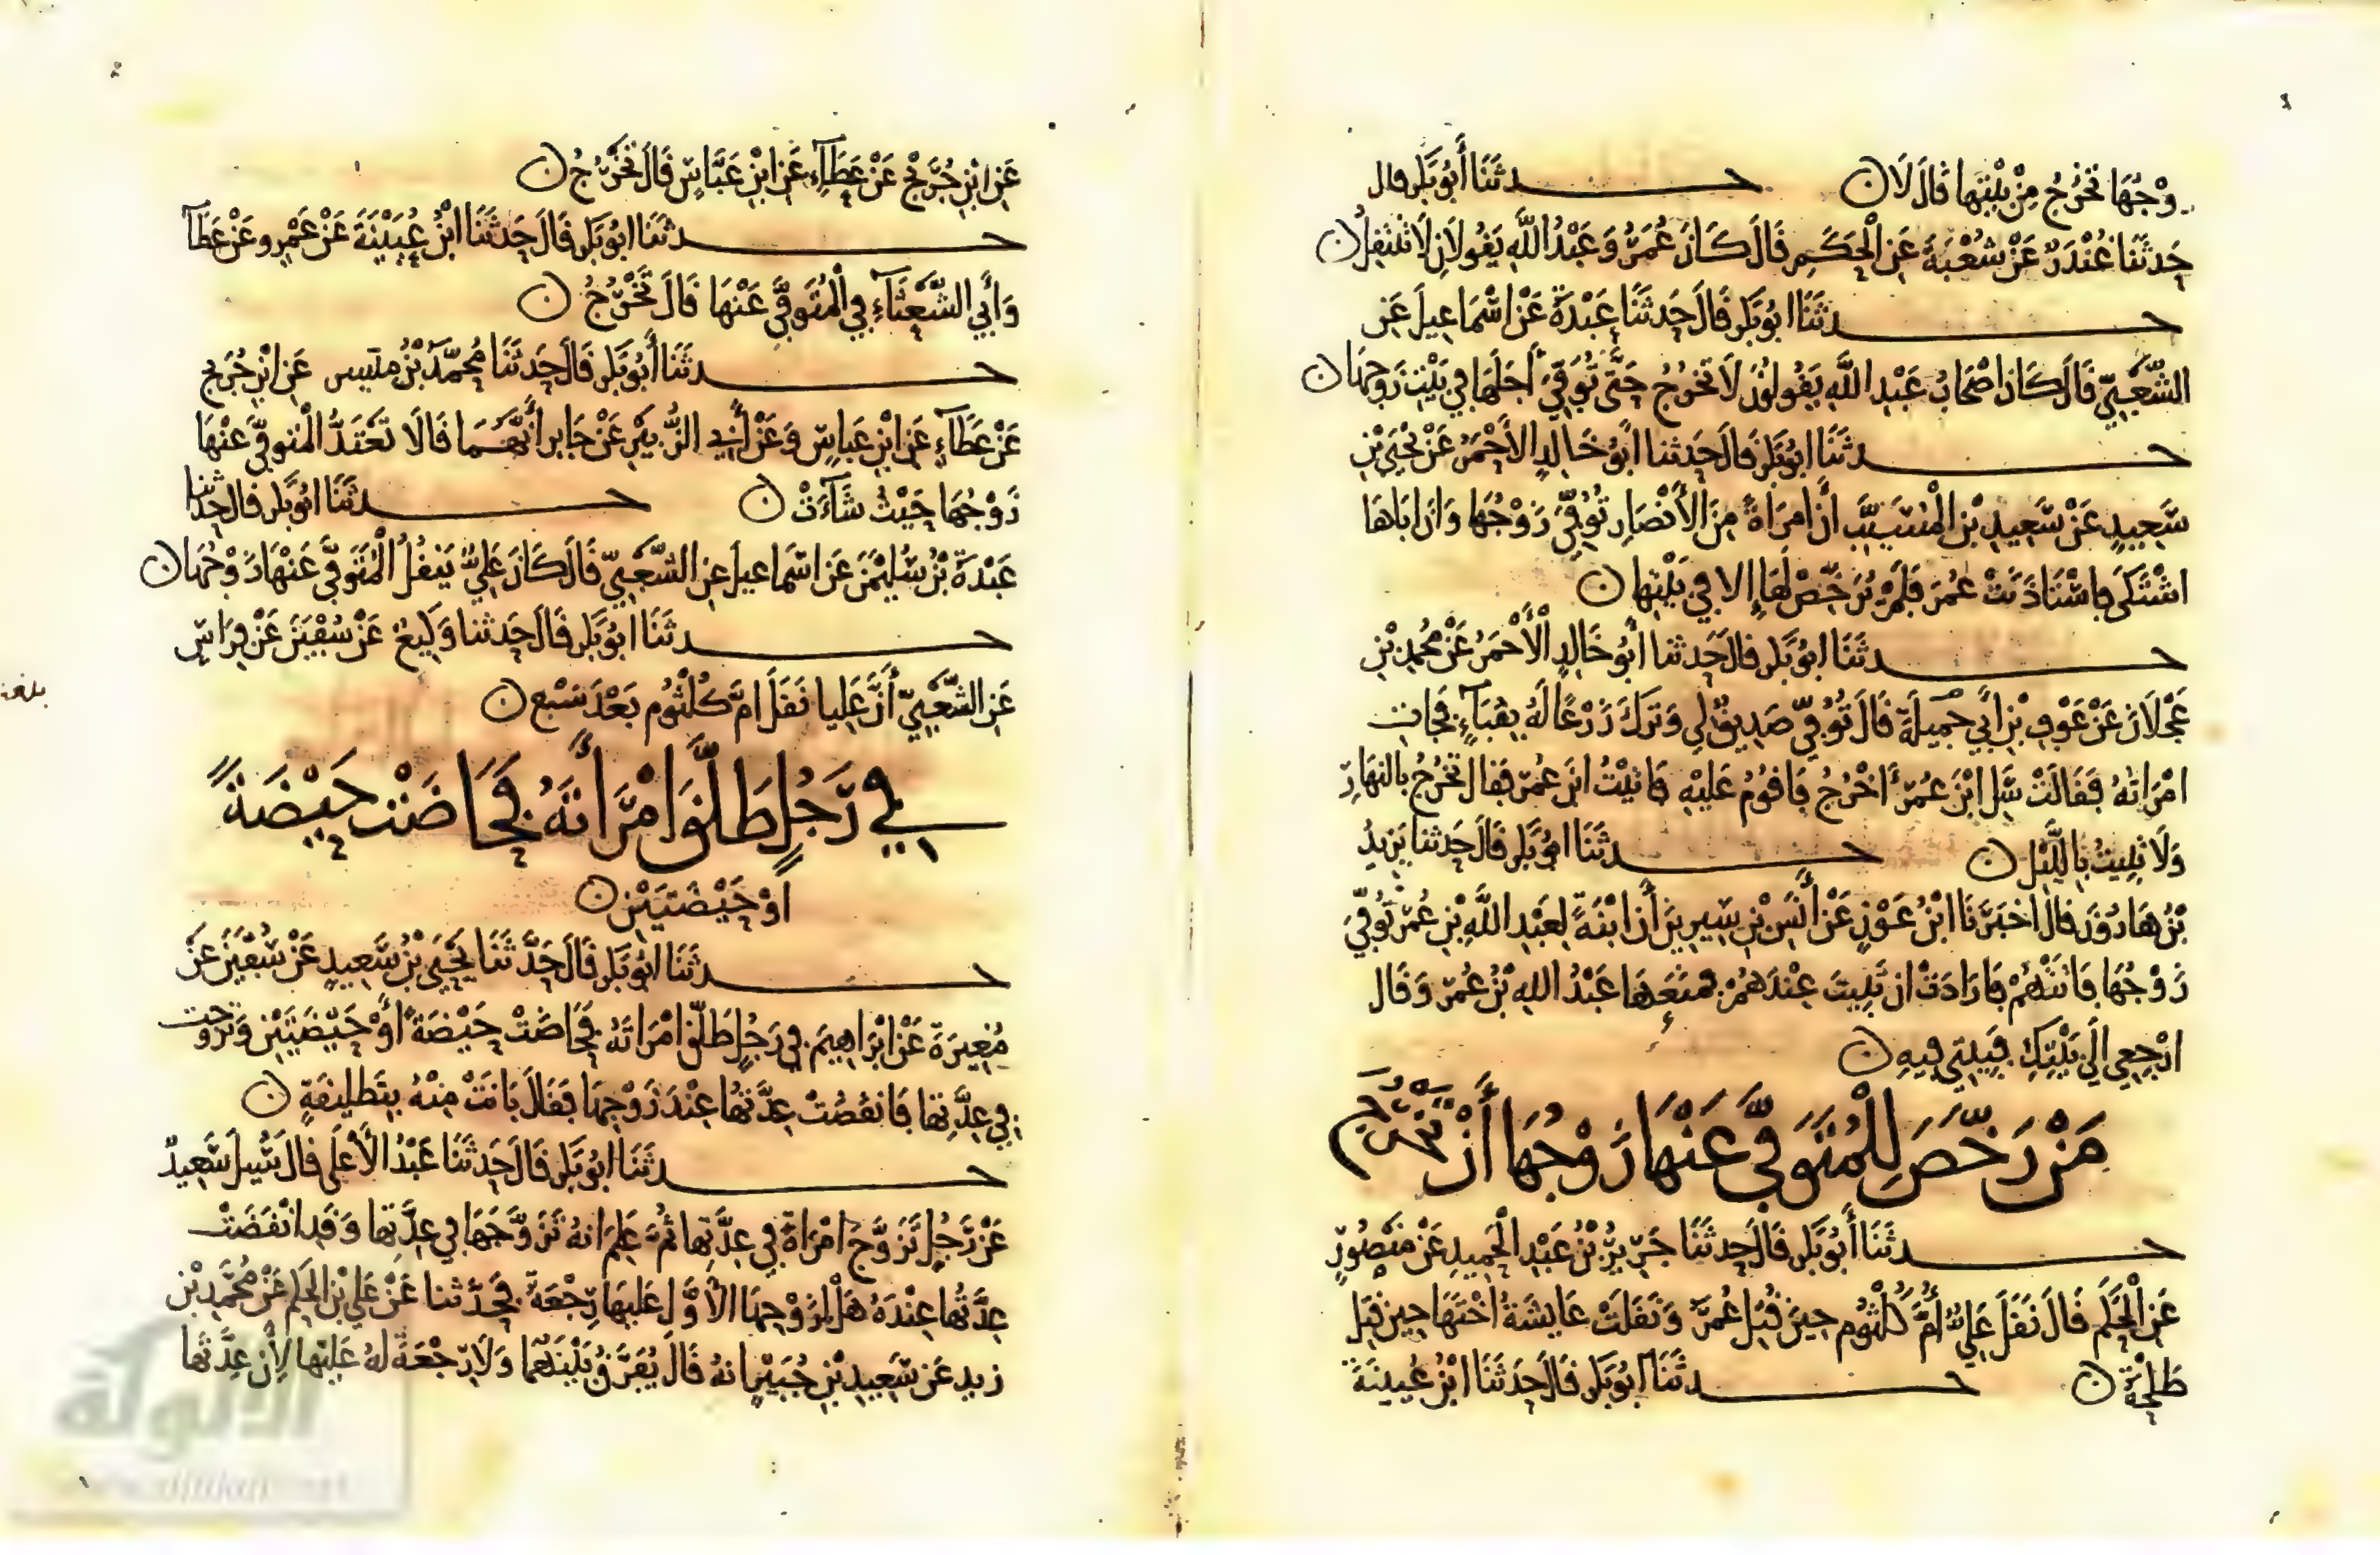 وْجُهَا تَخْرُجُ مِنْ بَيْتِهَا قَالَ لَا ن حدثَنَا أَبُو بَكر قال
حَدثَنَا غُنْدَرٌ عَنْ شُعْبَةَ عَنِ الْحَكَمِ قَالَ كَانَ عُمَرُ وَعَبْدُ اللَّهِ يَقُولَانِ لَا تَنْتَقِلُ ن
حدثَنَا ابُو بَكر قَالَ حَدثَنَا عَبْدَةُ عَنْ اسْمَاعِيلَ عَنِ
الشَّعْبِيِّ قَالَ كَانَ اصْحَابُ عَبْدِ اللَّهِ يَقُولُونَ لَا تَخرُجُ حَتَّى تُوَفِّيَ أَجَلَهَا فِي بَيْتِ زَوْجِهَا ن
حدثَنَا ابُو بَكر قَالَ حَدثنا أَبُو خَالِدٍ الأَحْمَرُ عَنْ يَحْيَى بْنِ
سَعِيدٍ عَنْ سَعِيدِ بْنِ الْمُسَيَّبِ أَنَّ امرَاةً مِنَ الأَنْصَارِ تُوُفِّيَ زَوْجُهَا وَأَنَّ ابَاهَا
اشْتَكَى فَاسْتَاذَنَتْ عُمَرَ فَلَمْ يُرَخِّصْ لَهَا إلا فِي بَيْتِهَا ن
حدثَنَا ابُو بَكر قالَ حَدثنا أَبُو خَالِدٍ الْأَحْمَرُ عَنْ مُحَمدِ بْنِ
عَجْلَانَ عَنْ عَوْفِ بْنِ أَبِي جَمِيلَةَ قَالَ تُوُفِّيَ صَدِيقٌ لِي وَتَرَكَ زَرْعًا لَهُ بِقُبَآءٍ فَجَات
امْرَاتُهُ فَقَالَتْ سَلِ ابْنَ عُمَرَ أَخْرُجُ فَاقُومُ عَلَيْهِ فَاتَيْتُ ابنَ عُمَرَ فَقال تَخْرُجُ بالنهَارِ
وَلَا تَبِيتُ بِاللَّيْلِ ن حدثَنَا ابُو بَكر قَالَ حَدثنا يَزِيدُ
بْنُ هَارُونَ قَالَ اخبَرَنَا ابْنُ عَوْنٍ عَنْ أَنَسِ بْنِ سِيرِينَ أَنَّ ابْنَةً لِعَبْدِ اللَّهِ بْنِ عُمَرَ تُوُفِّيَ
زَوْجُهَا فَاتَتْهُمْ فَارَادَتْ ان تَبِيتَ عِنْدَهُمْ فمَنَعَهَا عَبْدُ اللهِ بْنُ عُمَرَ وَقَال
ارْجِعِي الَى بَيْتِكِ فَبِيتِي فِيهِ ن
مَنْ رَخَّصَ لِلْمُتَوَفَّى عَنْهَا زَوْجُهَا أَنْ تَخْرُجَ
حدثَنَا أَبُو بَكر قَالَ حدثَنَا جَرِيرُ بْنُ عَبْدِ الْحَمِيدِ عَنْ مَنْصُورٍ
عَنِ الْحَكَمِ قَالَ نَقَلَ عَلِيٌّ أُمَّ كُلْثُوم حِينَ قُتِلَ عُمَرُ وَنَقَلَتْ عَايِشَةُ أُخْتَهَا حِينَ قُتِلَ
طَلْحَةُ ن حدثَنَا ابُو بَكر قَالَ حَدثَنَا ابْنُ عُيينَةَ
عَنِ ابْنِ جُرَيْجٍ عَنْ عَطَآءٍ عَنِ ابْنِ عَبَّاسٍ قَالَ تَخْرُجُ ن
حدثَنَا ابُو بَكر قَالَ حَدثَنَا ابْنُ عُيَيْنَةَ عَنْ عَمْرٍو عَنْ عَطَآ
وَأَبِي الشَّعْثَآءِ فِي الْمُتَوَفَّى عَنْهَا قَالَ تَخْرُجُ ن
حدثَنَا أَبُو بَكر قَالَ حَدثَنَا مُحَمَّدُ بْنُ ميسر عَنِ ابْنِ جُرَيج
عَنْ عَطَآءٍ عَنِ ابْنِ عَباسٍ وَعَنْ أَبِي الزُّبَيْرِ عَنْ جَابرٍ أَنَّهُمَا قَالَا تَعْتَدُّ الْمُتوفَّى عَنْهَا
زَوْجُهَا حَيْثُ شَآءَتْ ن حدثَنَا ابُو بَكر قَالَ حدثنا
عَبْدَةُ بْنُ سُلَيْمَنَ عَن اسْمَاعيلَ عنِ الشَّعْبِيِّ قَالَ كَانَ عَلِيٌّ يَنْقُلُ الْمُتَوَفَّى عَنْهَا زَوْجُهَا ن
حدثَنَا ابُو بَكر قَالَ حَدثنا وَكِيعٌ عَنْ سُفْيَنَ عَنْ فِرَاسٍ
عَنِ الشَّعْبِيِّ أَنَّ عَلِيا نَقَلَ امَّ كُلْثُوم بَعْدَ سَبْعٍ ن
فِي رَجُلٍ طَلَّقَ امْرَأَتَهُ فَحَاضَتْ حَيْضَةً
أَوْ حَيْضَتَيْنِ ن
حدثَنَا ابُو بَكر قَالَ حَدَّثَنَا يَحْيَى بْنُ سَعِيدٍ عَنْ سُفْيَنَ عَنْ
مُغِيرَةَ عَنْ ابْرَاهِيمَ فِي رَجُلٍ طَلَّقَ امْرَاتَهُ فَحَاضَتْ حَيْضَةً أَوْ حَيْضَتَيْنِ وَتزوجت
فِي عِدَّتِهَا فَانقضَتْ عِدَّتُهَا عِنْدَ زَوْجِهَا فَقَالَ بَانَتْ مِنْهُ بِتَطلِيقَةٍ ن
حدثَنَا ابُو بَكر قَالَ حَدثَنَا عَبْدُ الأَعلَى قَالَ سُيِلَ سَعِيدٌ
عَنْ رَجُلٍ تَزَوَّجَ امْرَاةً فِي عِدَّتِهَا ثُمَّ عَلِمَ انهُ تَزَوَّجَهَا فِي عِدَّتِهَا وَقَدِ انْقَضَتْ
عِدَّتُهَا عِنْدَهُ هَلْ لِزَوْجِهَا الأَوَّلِ عَلَيْهَا رِجْعَةٌ فَحَدَّثنا عَنْ عَلِيِّ بْنِ الْحَكَمِ عَنْ مُحَمَّدِ بْنِ
زيدٍ عَن سَعِيدِ بْنِ جُبَيْرٍ انهُ قَالَ يُفَرَّقُ بَيْنَهُمَا وَلَا رِجْعَةَ لهُ عَلَيْهَا لِأَن عِدَّتَهَا
بلغت
الألوكة